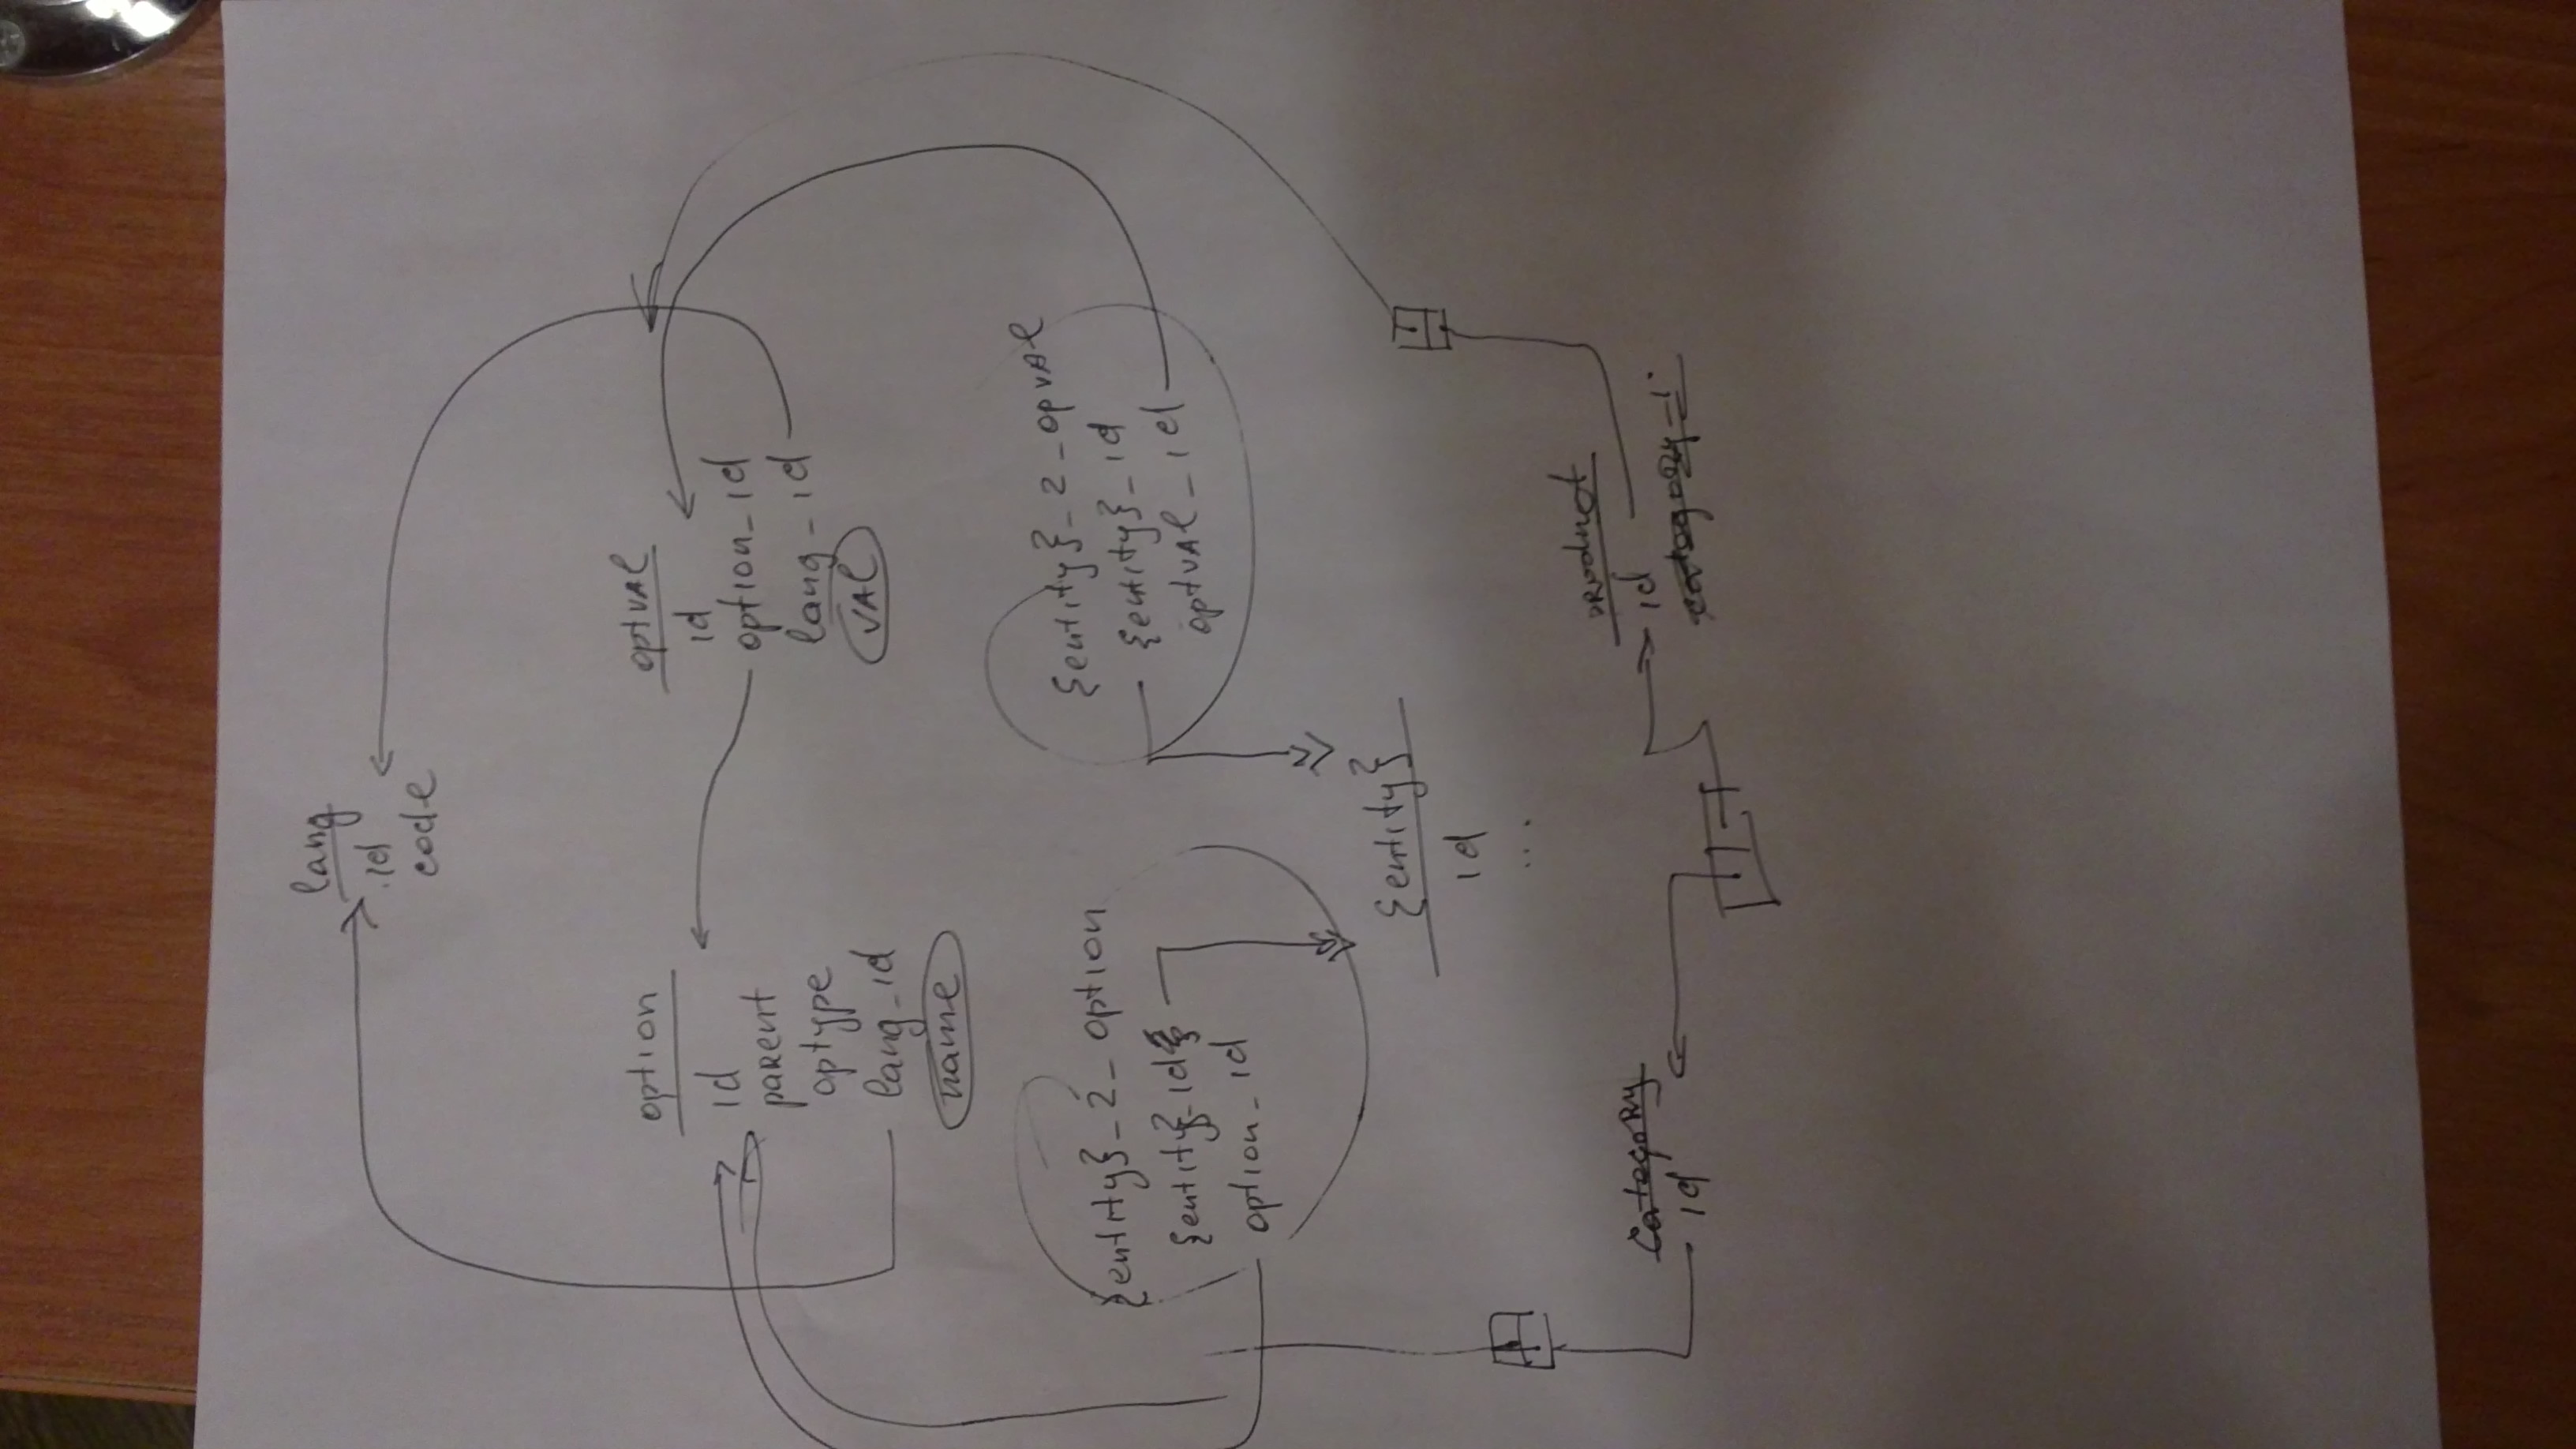 lang
id
code
option
id
parent
optype
lang_id
name
optval
id
option_id
lang_id
val
{entity}_2_option
{entity}_id}
option_id
{entity}_2_opval
{entity}_id
optval_id
{entity}
id
...
Category
id
product
id
category_i